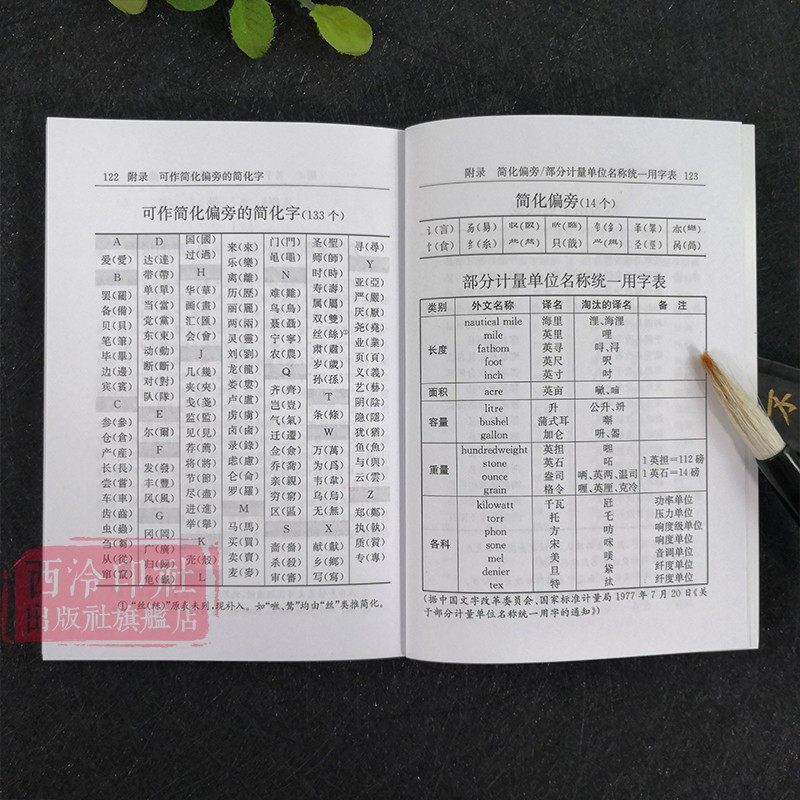 122 附录 可作简化偏旁的简化字
可作简化偏旁的简化字(133 个)
A
爱(愛)
B
罢(罷)
备(備)
贝(貝)
笔(筆)
毕(畢)
边(邊)
宾(賓)
C
参(參)
仓(倉)
产(產)
长(長)
尝(嘗)
车(車)
齿(齒)
虫(蟲)
刍(芻)
从(從)
窜(竄)
D
达(達)
带(帶)
单(單)
当(當)
党(黨)
东(東)
动(動)
断(斷)
对(對)
队(隊)
E
尔(爾)
F
发(發)
丰(豐)
风(風)
G
冈(岡)
广(廣)
归(歸)
龟(龜)
国(國)
过(過)
H
华(華)
画(畫)
汇(匯)
会(會)
J
几(幾)
夹(夾)
戋(戔)
监(監)
见(見)
荐(薦)
将(將)
节(節)
尽(盡)
进(進)
举(舉)
K
壳(殼)
L
来(來)
乐(樂)
离(離)
历(歷)
丽(麗)
两(兩)
灵(靈)
刘(劉)
龙(龍)
娄(婁)
卢(盧)
虏(虜)
卤(鹵)
录(錄)
虑(慮)
仑(侖)
罗(羅)
M
马(馬)
买(買)
卖(賣)
麦(麥)
门(門)
黾(黽)
N
难(難)
鸟(鳥)
聂(聶)
宁(寧)
农(農)
Q
齐(齊)
岂(豈)
气(氣)
迁(遷)
佥(僉)
乔(喬)
亲(親)
穷(窮)
区(區)
S
啬(嗇)
杀(殺)
审(審)
圣(聖)
师(師)
时(時)
寿(壽)
属(屬)
双(雙)
丝(絲)①
肃(肅)
岁(歲)
孙(孫)
T
条(條)
W
万(萬)
为(爲)
韦(韋)
乌(烏)
无(無)
X
献(獻)
乡(鄉)
写(寫)
寻(尋)
Y
亚(亞)
严(嚴)
厌(厭)
尧(堯)
业(業)
页(頁)
义(義)
艺(藝)
阴(陰)
隐(隱)
犹(猶)
鱼(魚)
与(與)
云(雲)
Z
郑(鄭)
执(執)
质(質)
专(專)
①“丝(絲)”原表未列,现补入。如“咝、鸶”均由“丝”类推简化。
附录 简化偏旁/部分计量单位名称统一用字表 123
简化偏旁(14 个)
部分计量单位名称统一用字表
类别 外文名称 译名 淘汰的译名 备 注
长度
nautical mile 海里 浬、海浬
mile 英里 哩
fathom 英寻 㖊、浔
foot 英尺 呎
inch 英寸 吋
面积 acre 英亩
容量
litre 升 公升、竔
bushel 蒲式耳
gallon 加仑
重量
hundredweight 英担 1 英担=112 磅
stone 英石 1 英石=14 磅
ounce 盎司 唡、英两、温司
grain 格令 喱、英厘、克冷
各科
kilowatt 千瓦 瓩 功率单位
torr 托 乇 压力单位
phon 方 吩 响度级单位
sone 宋 响度单位
mel 美 音调单位
denier 旦 纤度单位
tex 特 纤度单位
(据中国文字改革委员会、国家标准计量局 1977 年 7 月 20 日《关
于部分计量单位名称统一用字的通知》)
西泠印社
出版社旗艦店